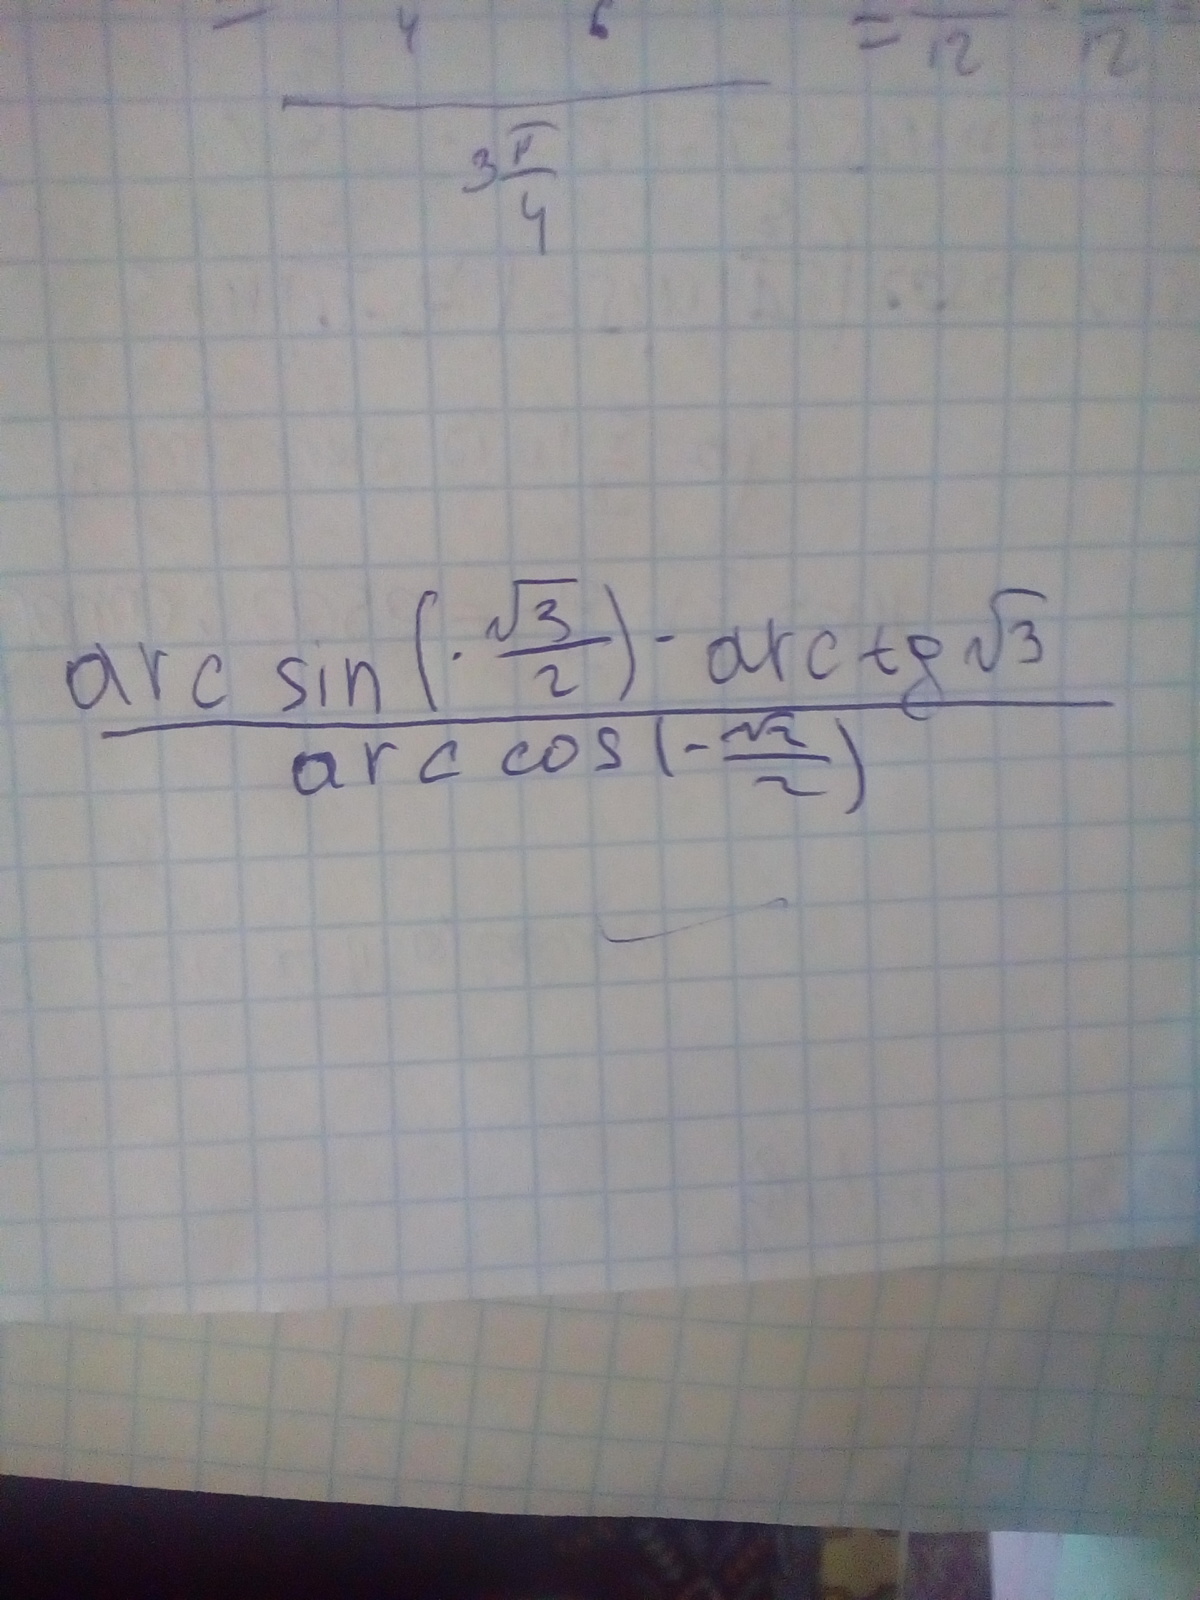 4 6 = 12 12
3π/4
arc sin (-√3/2) - arc tg √3
arc cos (-√2/2)